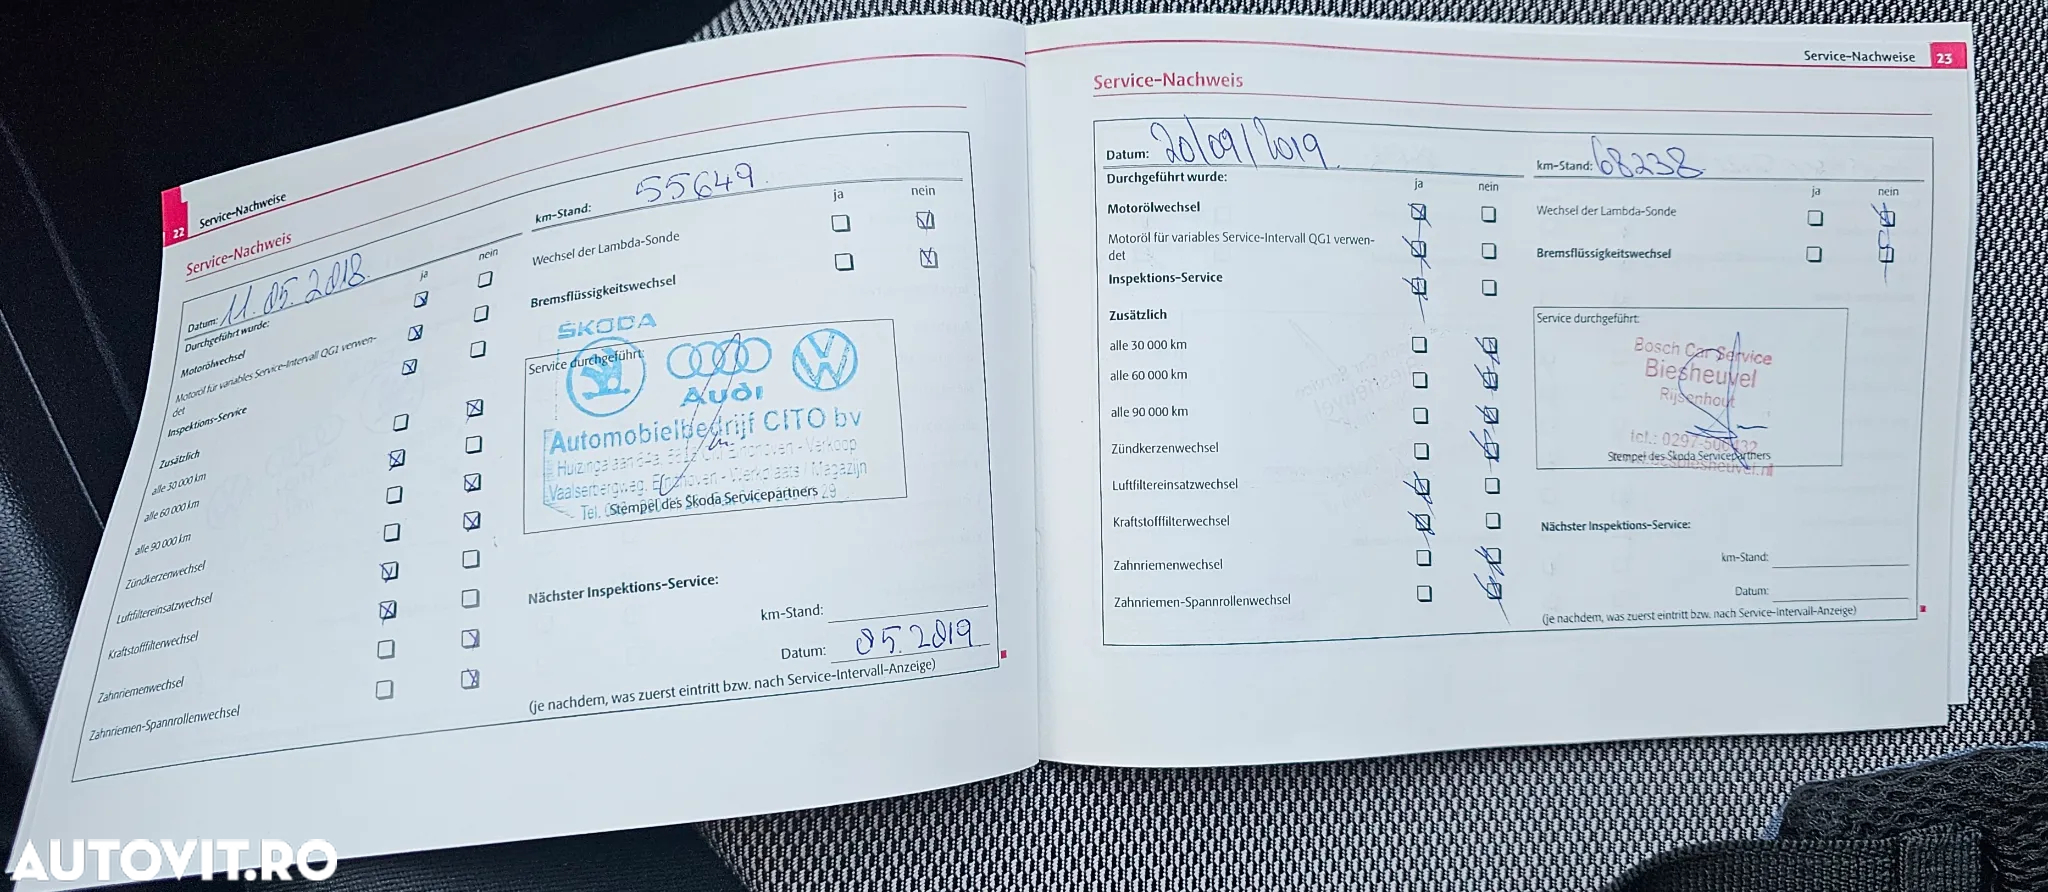 22 Service-Nachweise
Service-Nachweis
Datum: 11.05.2018.
Durchgeführt wurde: ja nein
Motorölwechsel
Motoröl für variables Service-Intervall QG1 verwen-
det
Inspektions-Service
Zusätzlich
alle 30 000 km
alle 60 000 km
alle 90 000 km
Zündkerzenwechsel
Luftfiltereinsatzwechsel
Kraftstofffilterwechsel
Zahnriemenwechsel
Zahnriemen-Spannrollenwechsel
km-Stand: 55649
ja nein
Wechsel der Lambda-Sonde
Bremsflüssigkeitswechsel
ŠKODA
Service durchgeführt:
Audi
Automobielbedrijf CITO bv
Eindhoven - Verkoop
Vaalserbergweg, Eindhoven - Werkplaats / Magazijn
Tel.
Stempel des Škoda Servicepartners
Nächster Inspektions-Service:
km-Stand:
Datum: 05.2019
(je nachdem, was zuerst eintritt bzw. nach Service-Intervall-Anzeige)
Service-Nachweise 23
Service-Nachweis
Datum: 20/09/2019.
Durchgeführt wurde: ja nein
Motorölwechsel
Motoröl für variables Service-Intervall QG1 verwen-
det
Inspektions-Service
Zusätzlich
alle 30 000 km
alle 60 000 km
alle 90 000 km
Zündkerzenwechsel
Luftfiltereinsatzwechsel
Kraftstofffilterwechsel
Zahnriemenwechsel
Zahnriemen-Spannrollenwechsel
km-Stand: 68238
ja nein
Wechsel der Lambda-Sonde
Bremsflüssigkeitswechsel
Service durchgeführt:
Bosch Car Service
Biesheuvel
Rijsenhout
tel.:
Stempel des Škoda Servicepartners
Nächster Inspektions-Service:
km-Stand:
Datum:
(je nachdem, was zuerst eintritt bzw. nach Service-Intervall-Anzeige)
AUTOVIT.RO